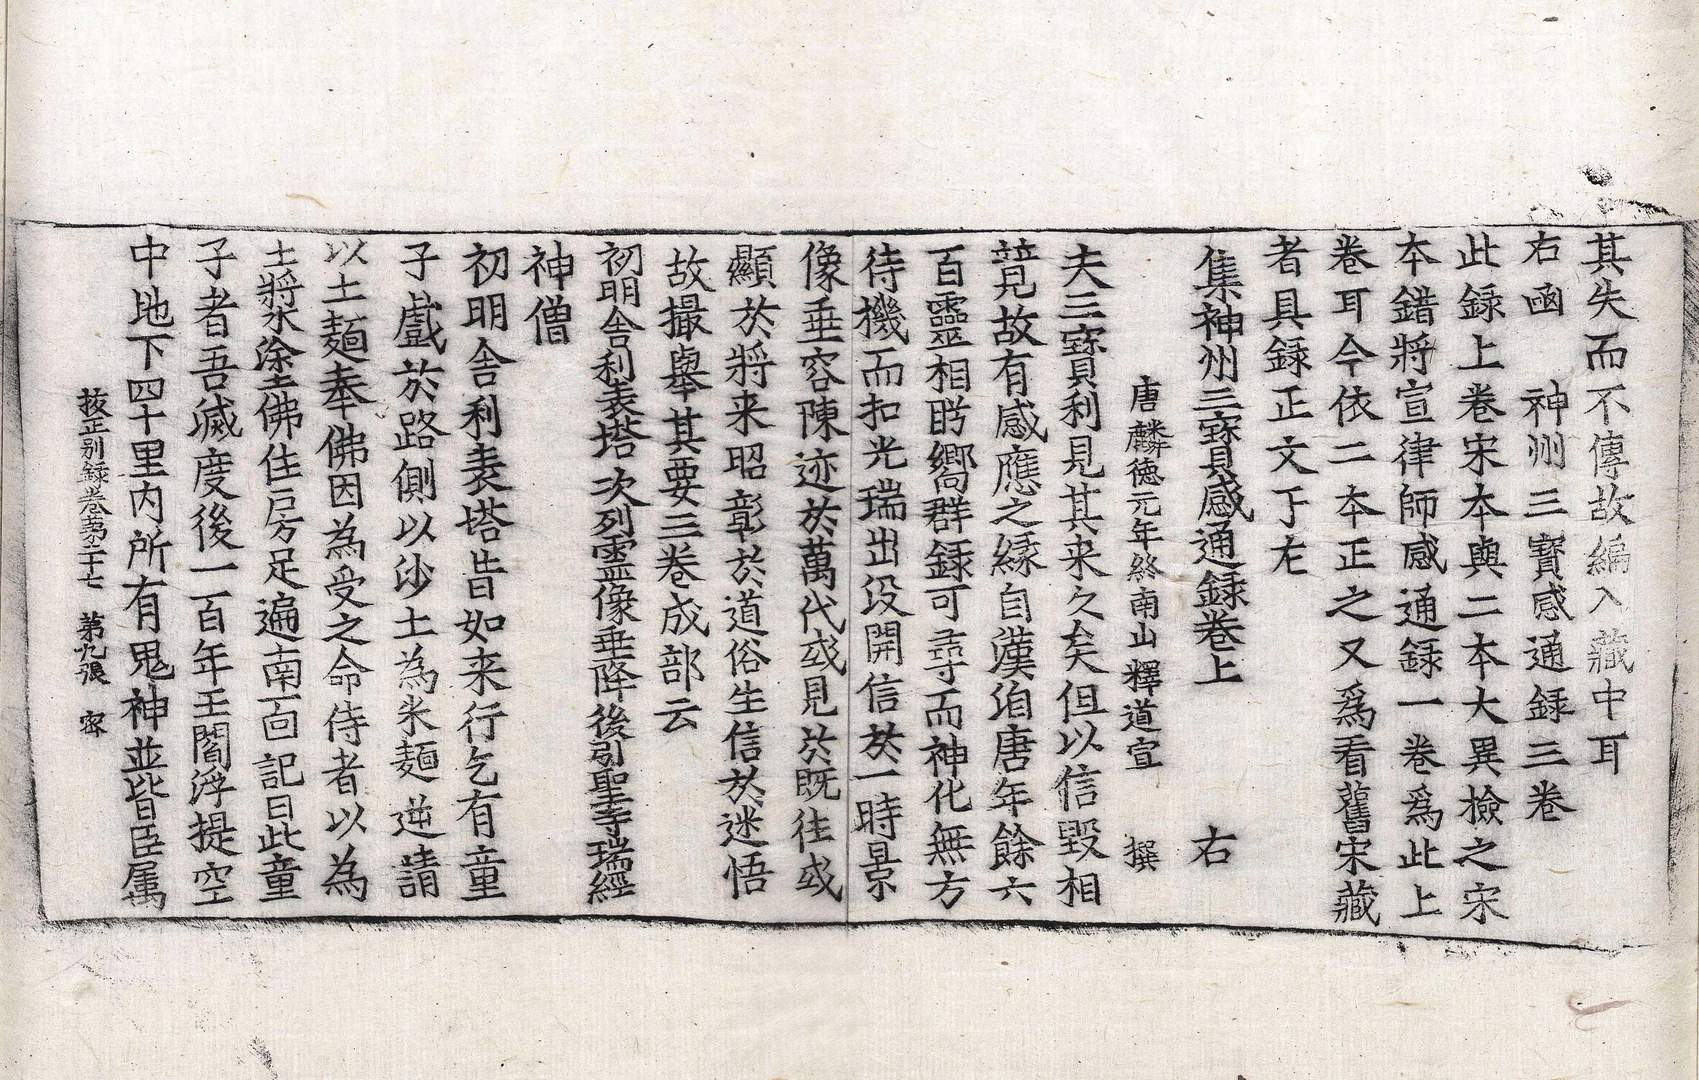 其失而不傳故編入藏中耳
右函　神州三寶感通録三卷
此録上卷宋本與二本大異檢之宋
本錯將宣律師感通録一卷爲此上
卷耳今依二本正之又爲看舊宋藏
者具録正文于左
集神州三寶感通録卷上　右
唐麟德元年終南山釋道宣　撰
夫三寶利見其来久矣但以信毀相
競故有感應之縁自漢洎唐年餘六
百靈相肹嚮群録可尋而神化無方
待機而扣光瑞出没開信於一時景
像垂容陳迹於萬代或見於既往或
顯於將来昭彰於道俗生信於迷悟
故撮舉其要三卷成部云
初明舎利表塔次列靈像垂降後引聖寺瑞經
神僧
初明舎利表塔昔如来行乞有童
子戲於路側以沙土為米麺逆請
以土麺奉佛因為受之命侍者以為
土將氶塗佛住房足遍南面記曰此童
子者吾滅度後一百年王閻浮提空
中地下四十里内所有鬼神並皆臣属
挍正别録卷第二十七　第九張　宻